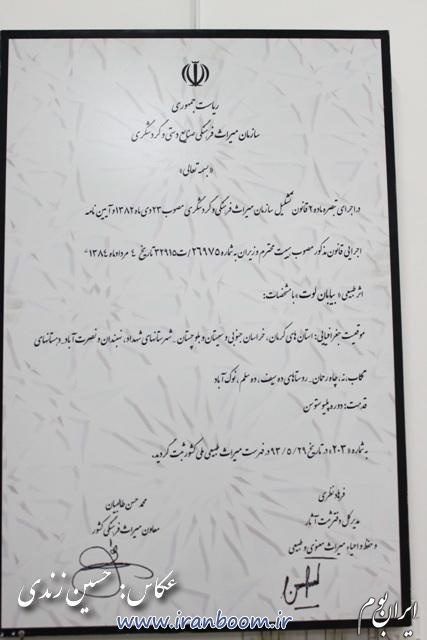 ریاست جمهوری
سازمان میراث فرهنگی، صنایع دستی و گردشگری
«بسمه تعالی»
در اجرای تبصره ماده ۶ قانون تشکیل سازمان میراث فرهنگی و گردشگری مصوب ۲۳ دی ماه ۱۳۸۲ و آیین نامه
اجرایی قانون مذکور مصوب هیئت محترم وزیران به شماره ۲۶۹۷۵/ت۳۲۹۱۵ تاریخ ۴ مرداد ماه ۱۳۸۴
اثر طبیعی «بیابان لوت» با مشخصات:
موقعیت جغرافیایی: استان های کرمان، خراسان جنوبی و سیستان و بلوچستان - شهرستانهای شهداد، نهبندان و نصرت آباد - دهستانهای
تکاب، نه، چاه‌ورتمان - روستاهای ده سیف، ده سلم، نوک آباد
قدمت: دوره پلیوستوسن
به شماره «۲۰۳» در تاریخ ۹۳/۵/۲۹ در فهرست میراث طبیعی ملی کشور ثبت گردید.
فرهاد نظری
مدیر کل دفتر ثبت آثار
و حفظ و احیاء میراث معنوی و طبیعی
محمد حسن طالبیان
معاون میراث فرهنگی کشور
عکاس: حسین زندی
www.iranboom.ir
ایران بوم